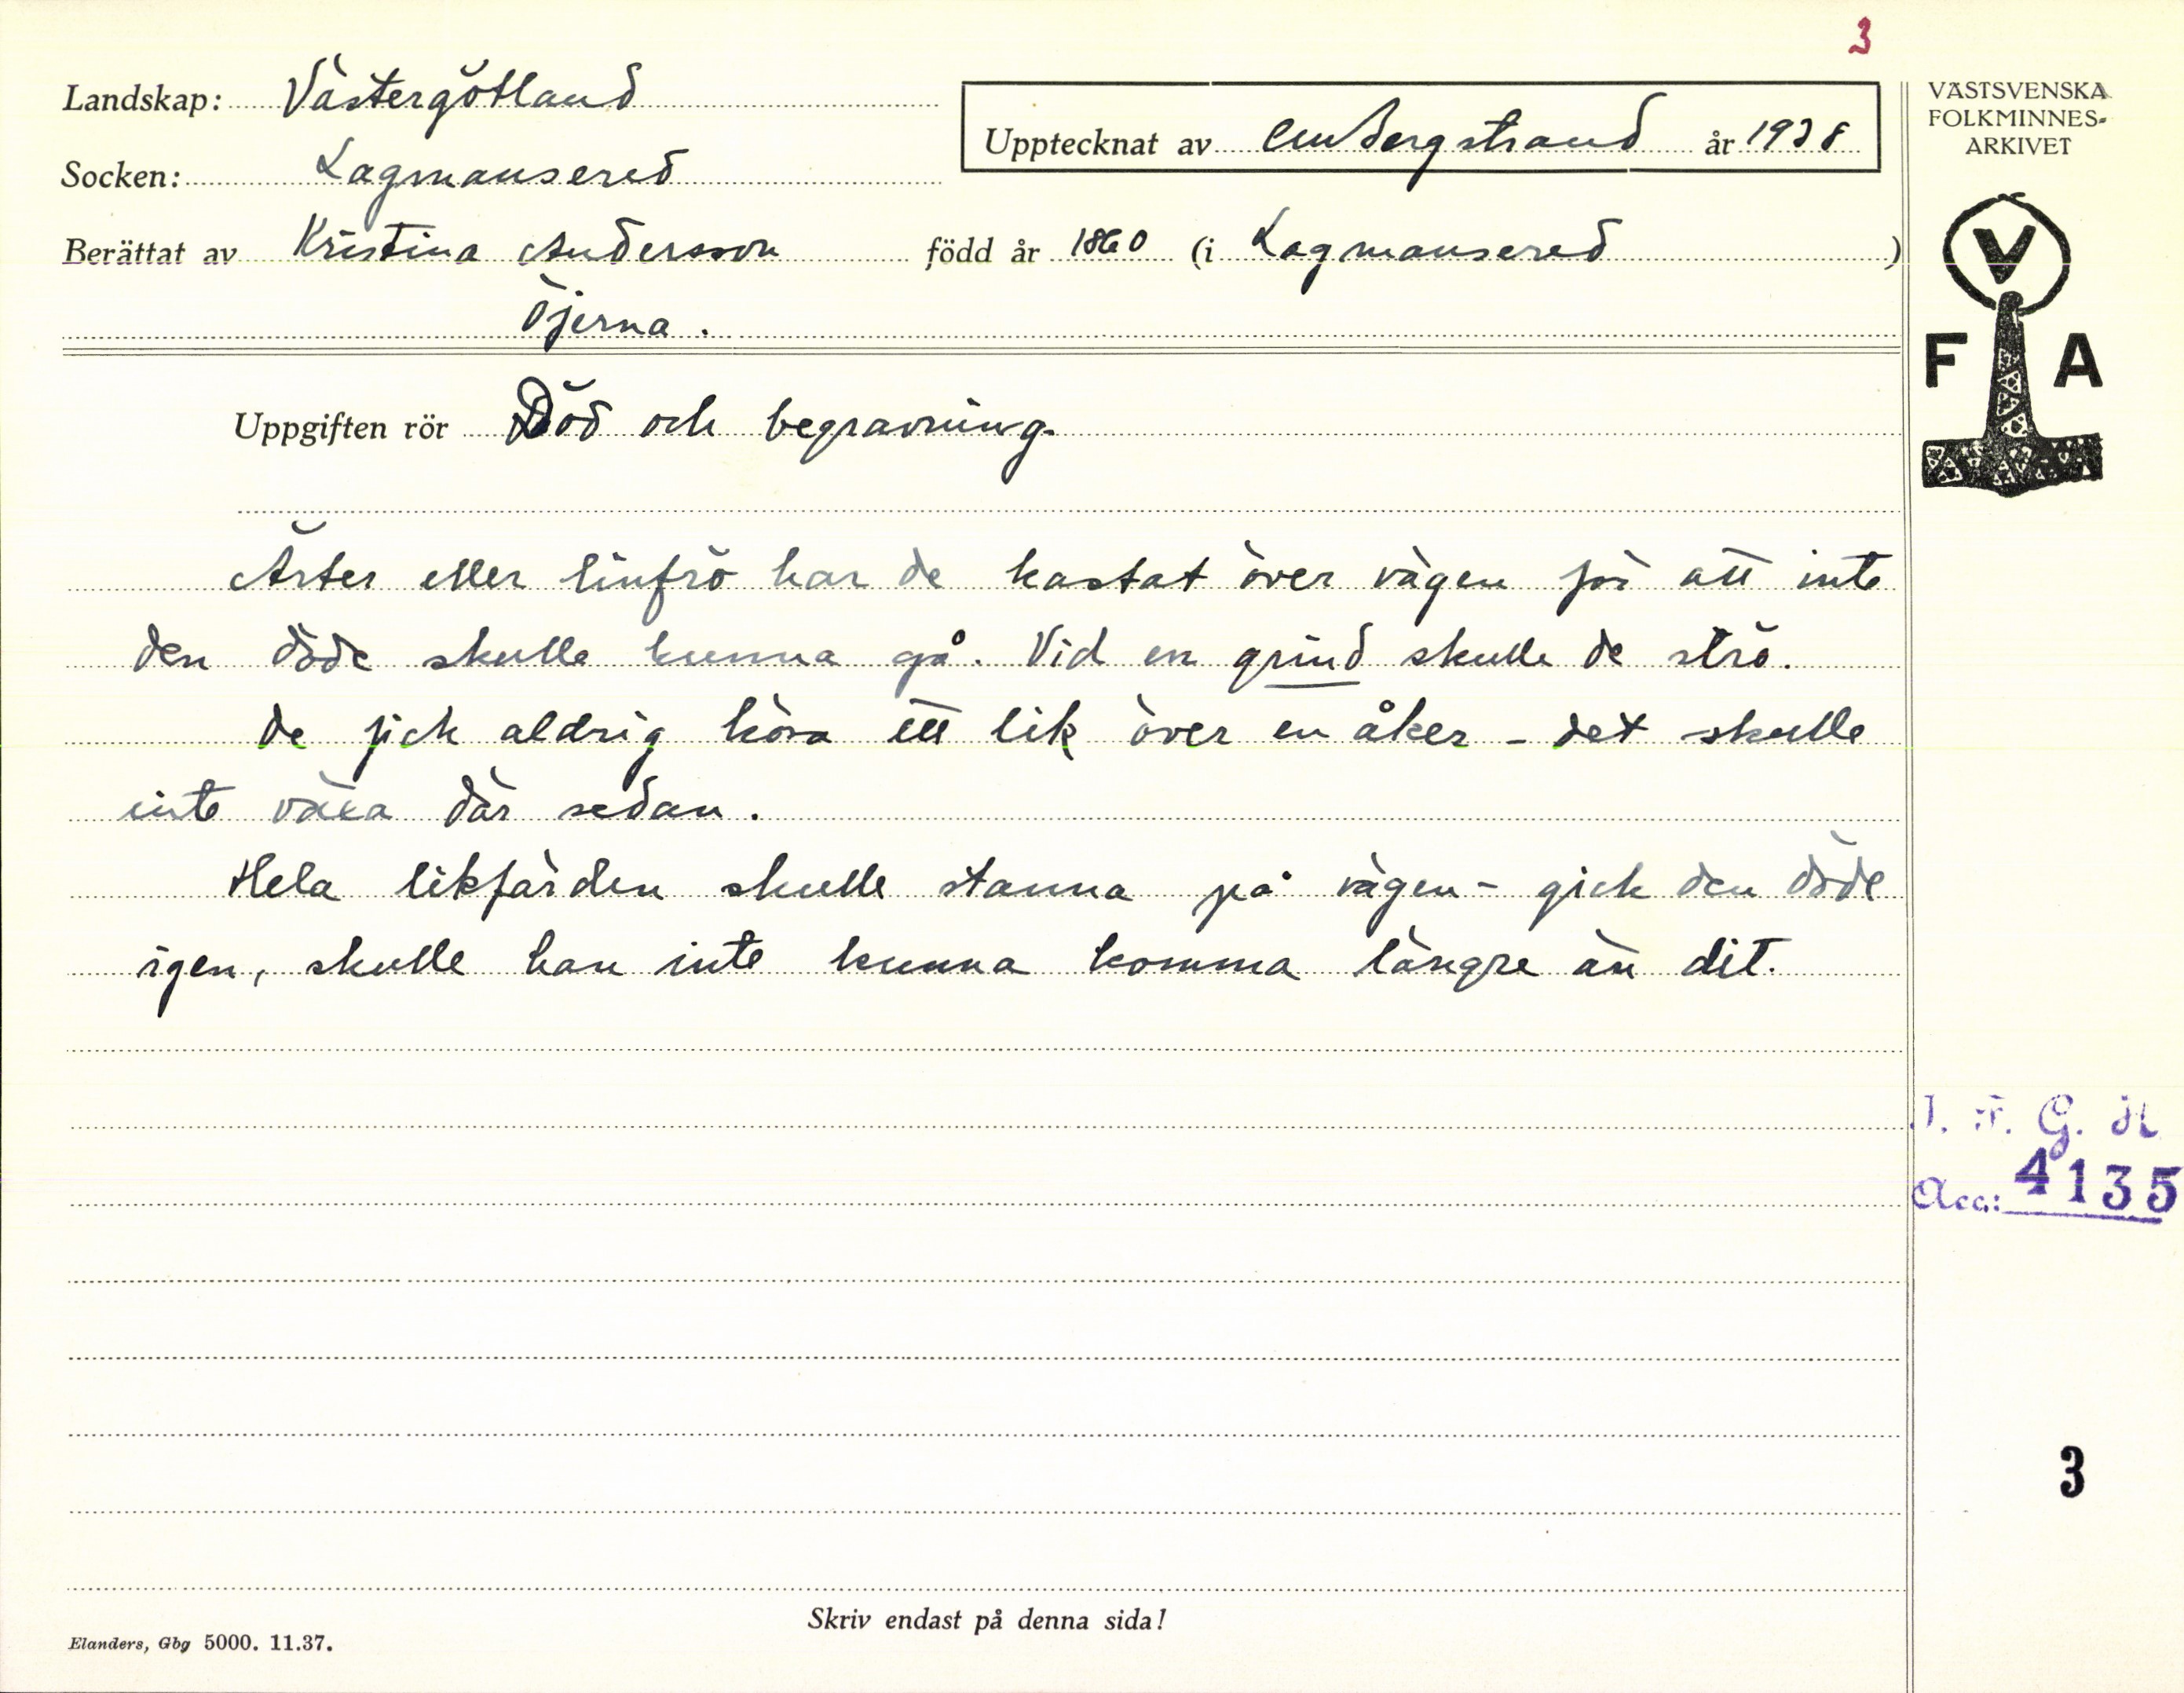 3
Landskap: Västergötland
Upptecknat av CM Bergstrand år 1938
VÄSTSVENSKA
FOLKMINNES-
ARKIVET
Socken: Lagmansered
Berättat av Kristina Andersson född år 1860 (i Lagmansered)
Öjerna.
V
F A
Uppgiften rör Död och begravning.
Ärter eller linfrö har de kastat över vägen för att inte
den döde skulle kunna gå. Vid en grind skulle de strö.
de fick aldrig köra ett lik över en åker - det skulle
inte växa där sedan.
Hela likfärden skulle stanna på vägen - gick den döde
igen, skulle han inte kunna komma längre än dit.
I. F. G. H
Acc.: 4135
3
Skriv endast på denna sida!
Elanders, Gbg 5000. 11.37.